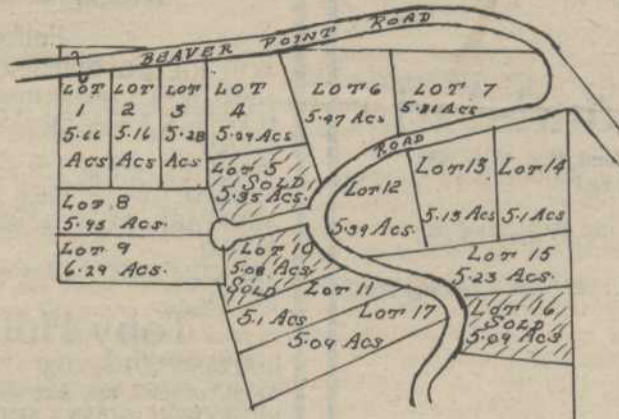 BEAVER POINT ROAD
LOT 1 5.66 Acs
LOT 2 5.16 Acs
LOT 3 5.28 Acs
LOT 4 5.09 Acs
LOT 6 5.47 Acs
LOT 7 5.21 Acs
ROAD
LOT 5 SOLD 5.35 Acs.
LOT 8
5.93 Acs.
LOT 9
6.29 Acs.
LOT 10
5.08 Acs.
SOLD
LOT 11
5.1 Acs
LOT 12
5.39 Acs.
LOT 13
5.13 Acs
LOT 14
5.1 Acs
LOT 15
5.23 Acs.
LOT 16
SOLD
5.09 Acs
LOT 17
5.04 Acs